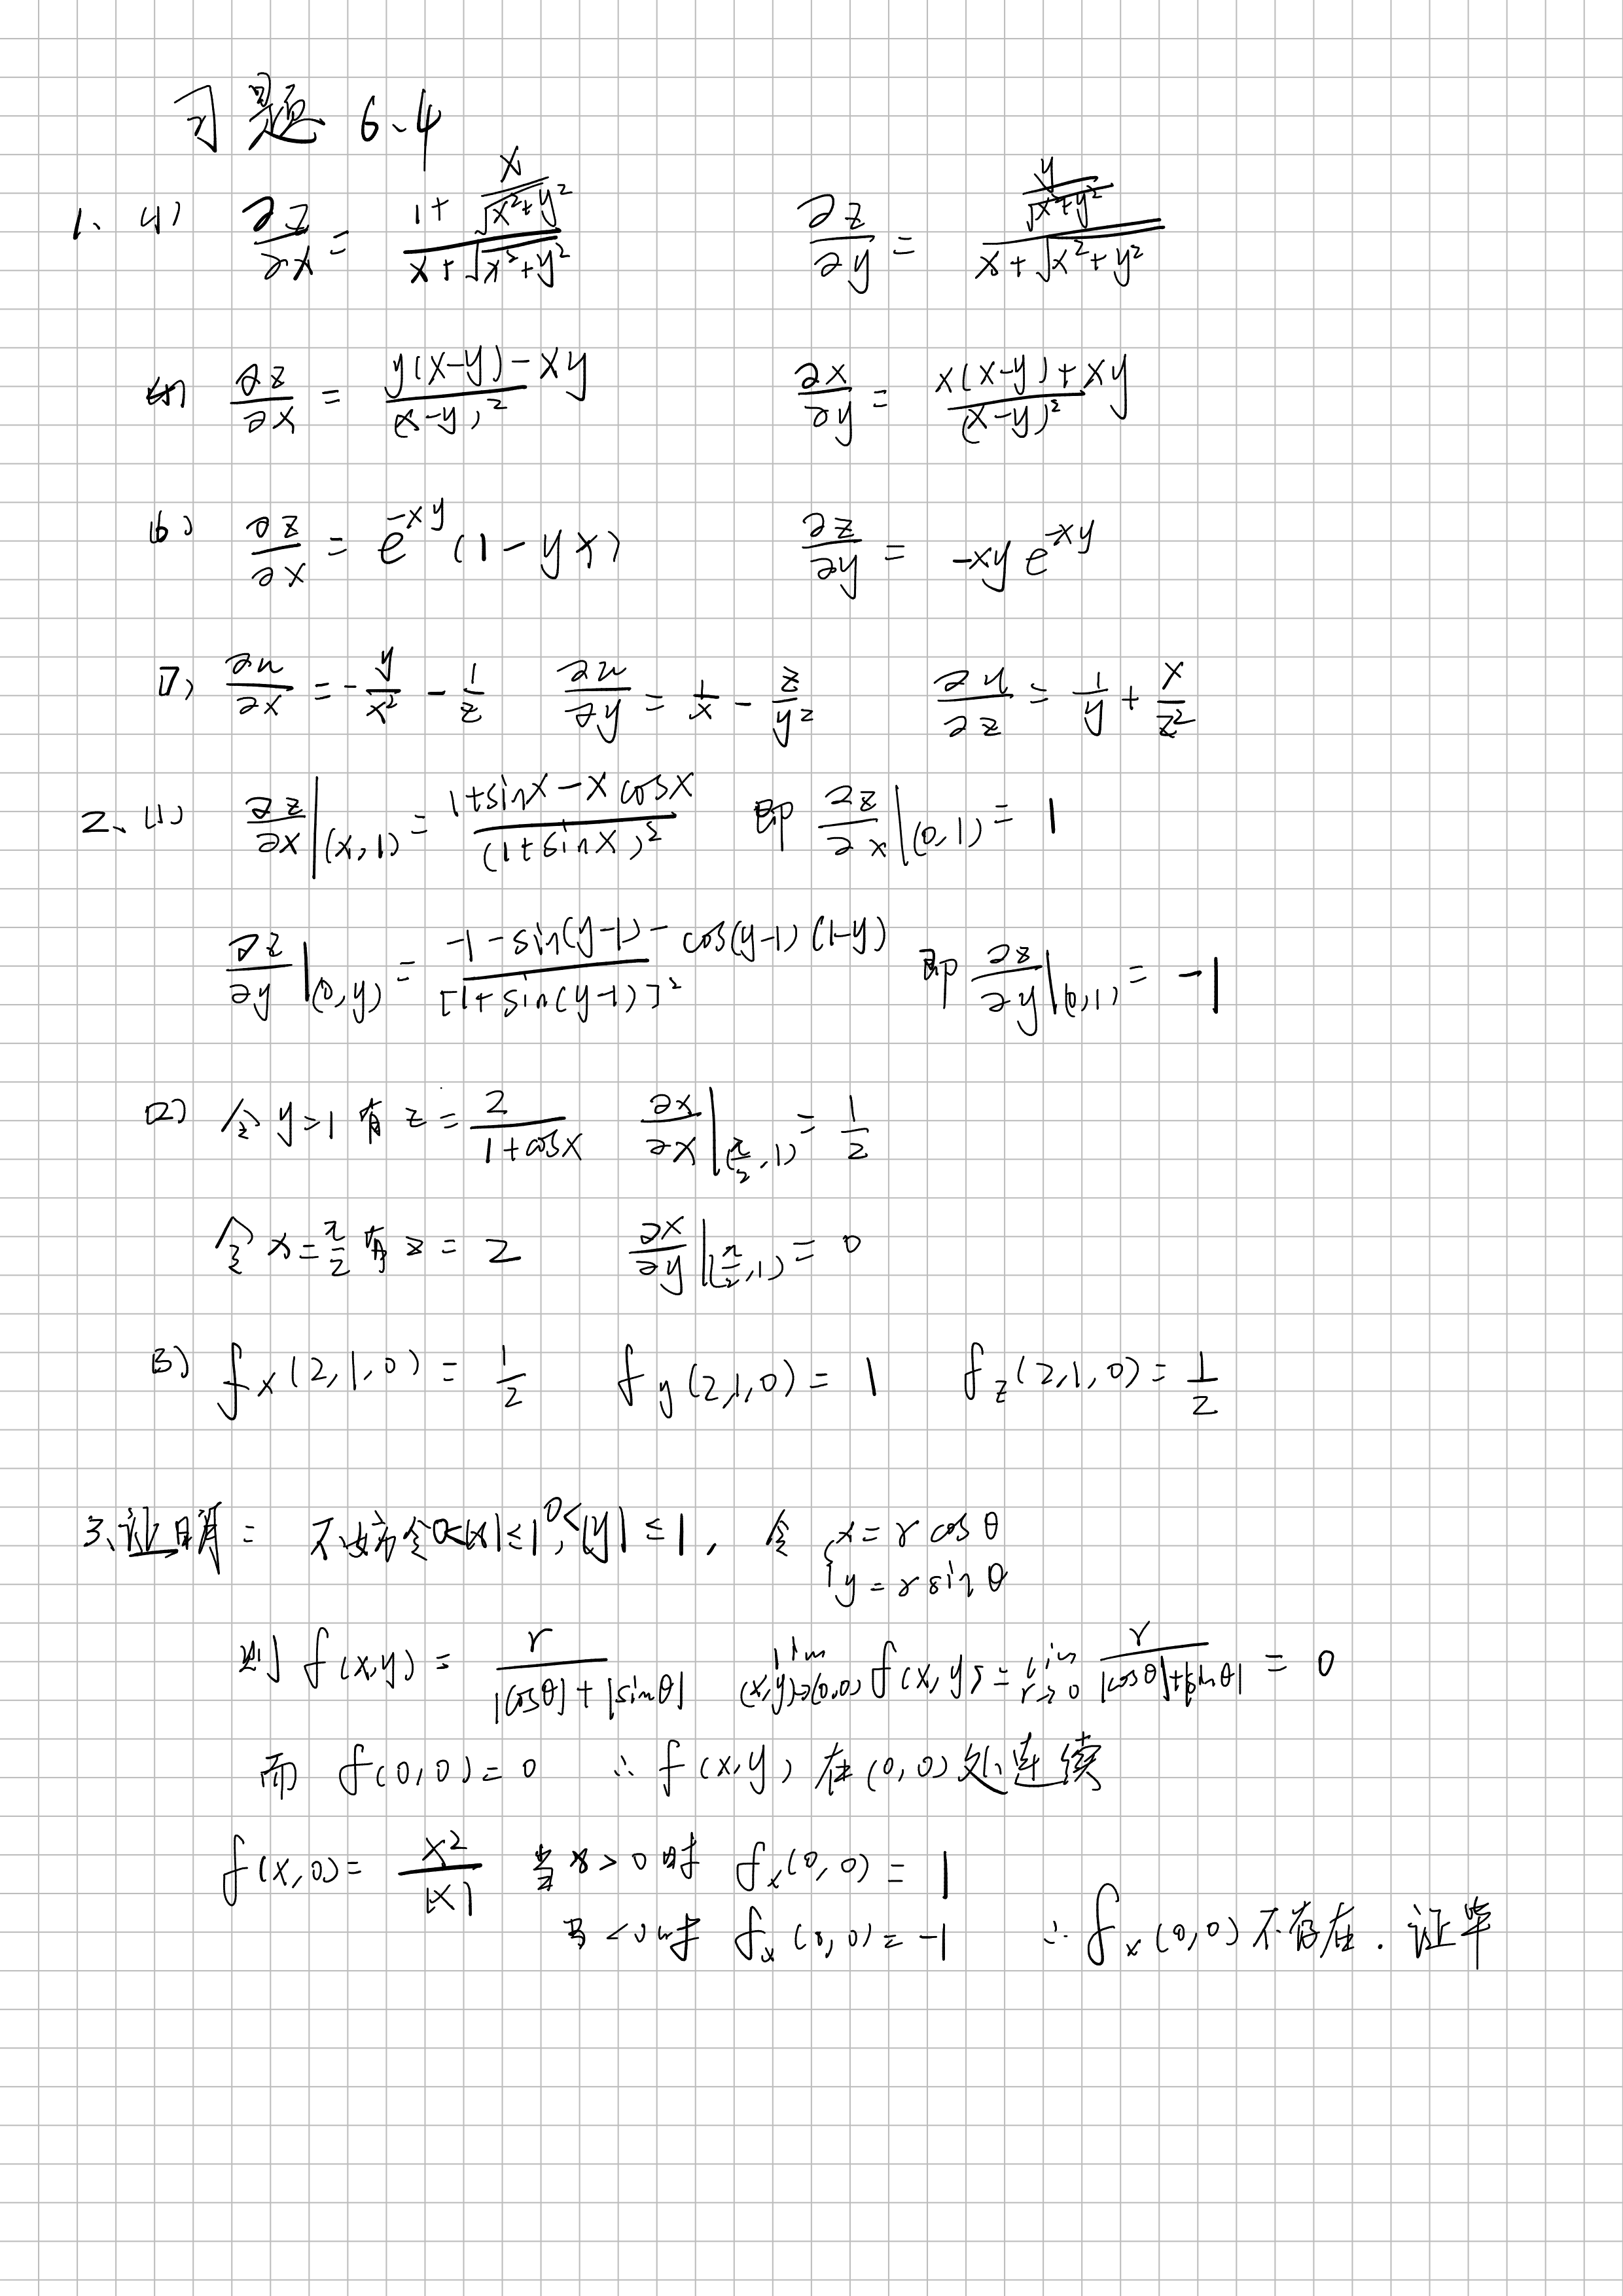 习题 6.4
1、(1) ∂z/∂x = (1 + x/√(x²+y²))/(x+√(x²+y²))  ∂z/∂y = (y/√(x²+y²))/(x+√(x²+y²))
∂z/∂x = (y(x-y)-xy)/(x-y)²  ∂x/∂y = (x(x-y)+xy)/(x-y)²
(6) ∂z/∂x = e^{-xy}(1-yx)  ∂z/∂y = -xy e^{-xy}
(7) ∂u/∂x = -y/x² - 1/z  ∂u/∂y = 1/x - z/y²  ∂u/∂z = 1/y + x/z²
2、(1) ∂z/∂x|(x,1) = (1+sinx-x cosx)/(1+sinx)²  即 ∂z/∂x|(0,1) = 1
∂z/∂y|(0,y) = (-1-sin(y-1)-cos(y-1)(1-y))/[1+sin(y-1)]²  即 ∂z/∂y|(0,1) = -1
(2) 令 y=1 有 z = 2/(1+cosx)  ∂x/∂x|(π/2,1) = 1/2
令 x=π/2 有 z = 2  ∂x/∂y|(π/2,1) = 0
(3) f_x(2,1,0) = 1/2  f_y(2,1,0) = 1  f_z(2,1,0) = 1/2
3、证明: 不妨令0<|x|≤1, 0<|y|≤1, 令 { x = r cosθ
y = r sinθ
则 f(x,y) = r/(|cosθ|+|sinθ|)  lim (x,y)→(0,0) f(x,y) = lim r→0 r/(|cosθ|+|sinθ|) = 0
而 f(0,0)=0 ∴ f(x,y) 在(0,0)处连续
f(x,0) = x²/|x| 当 x>0时 f_x(0,0) = 1
当 <0时 f_x(0,0) = -1 ∴ f_x(0,0)不存在. 证毕